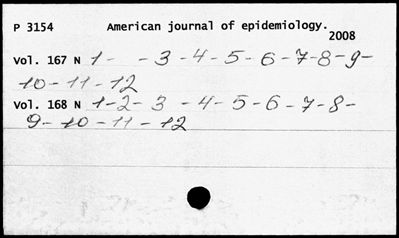 P 3154 American journal of epidemiology.
2008
Vol. 167 N 1 - - 3 - 4 - 5 - 6 - 7 - 8 - 9 -
10 - 11 - 12
Vol. 168 N 1 - 2 - 3 - 4 - 5 - 6 - 7 - 8 -
9 - 10 - 11 - 12